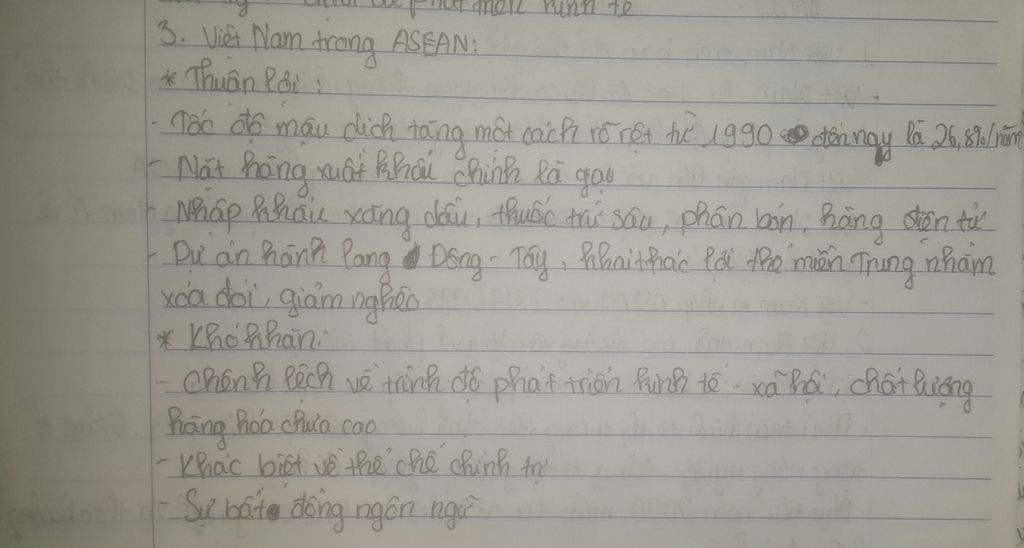 phát triển kinh tế
3. Việt Nam trong ASEAN:
* Thuận lợi :
- Tốc độ mậu dịch tăng một cách rõ rệt từ 1990 đến nay là 26,8%/năm
- Mặt hàng xuất khẩu chính là gạo
- Nhập khẩu xăng dầu, thuốc trừ sâu, phân bón, hàng điện tử
- Dự án hành lang Đông - Tây, khai thác lợi thế miền Trung nhằm
xóa đói, giảm nghèo
* Khó khăn:
- Chênh lệch về trình độ phát triển kinh tế - xã hội, chất lượng
hàng hóa chưa cao
- Khác biệt về thể chế chính trị
- Sự bất đồng ngôn ngữ